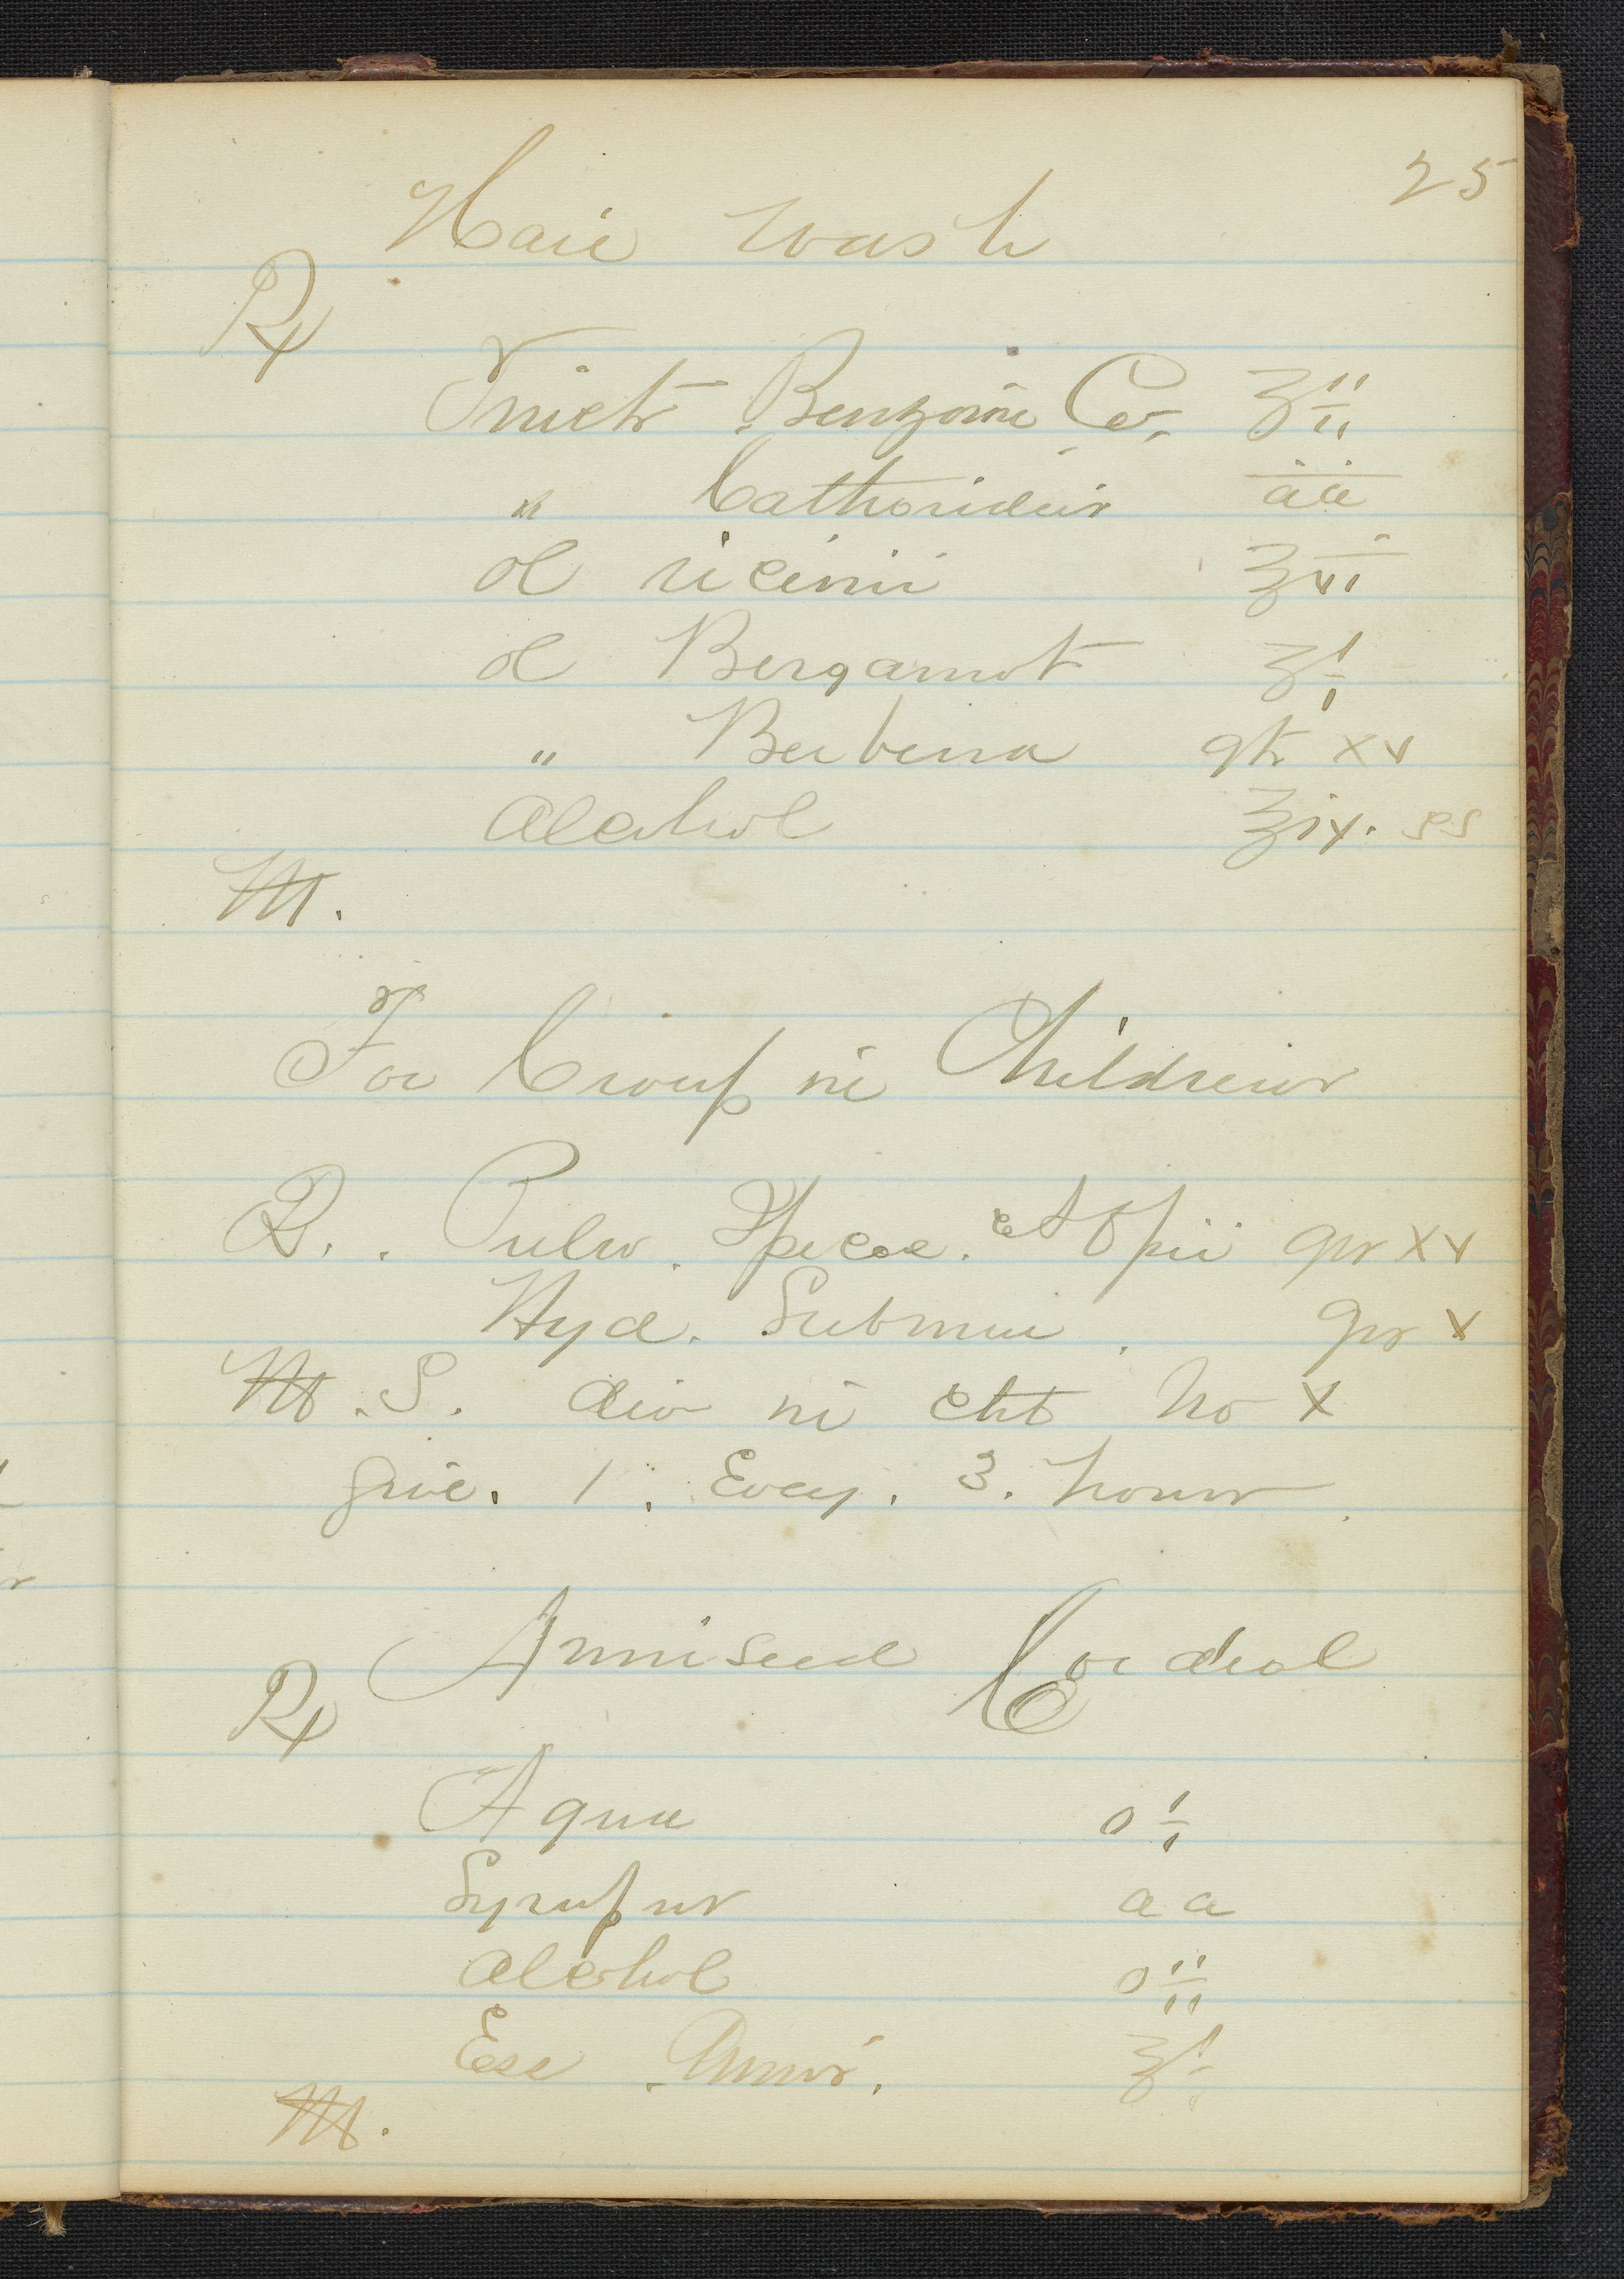 25
Hair Wash
℞
Tinct Benzoini Co. ʒii
" Cathoridin āā
Ol ricinii
Ol Bergamot ʒi
" Berbena gtt xv
Alcohol ℥ix. ss
M.
For Croup in Children
℞. Pulv. Ipecac. et Opii grs xv
Hyd. Submur. grs x
M. S. div in cht No x
Give. 1. Every. 3. hours.
Anniseed Cordial
℞
Aqua O i
Syrupus aa
Alcohol O ii
Ess. Annis. ℥i
M.